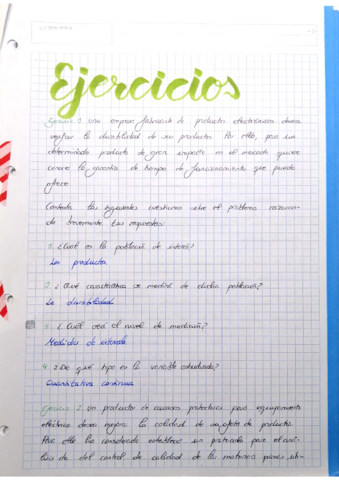 Ejercicios
Ejercicio 1. Una empresa fabricante de productos electrónicos desea
vigilar la durabilidad de sus productos. Por ello, para un
determinado producto de gran impacto en el mercado quiere
conocer la garantía de tiempo de funcionamiento que puede
ofrecer.
Contesta las siguientes cuestiones sobre el problema razonan-
do brevemente tus respuestas:
1. ¿Cuál es la población de interés?
Los productos
2. ¿Qué característica se medirá de dicha población?
La durabilidad
3. ¿Cuál será el nivel de medición?
Medidas de intervalo
4. ¿De qué tipo es la variable estudiada?
Cuantitativa continua
Ejercicio 2. Un productor de carcasas protectoras para equipamiento
eléctrico desea mejorar la calidad de su oferta de producto.
Para ello ha considerado establecer un protocolo para el aná-
lisis de del control de calidad de las materias primas uti-